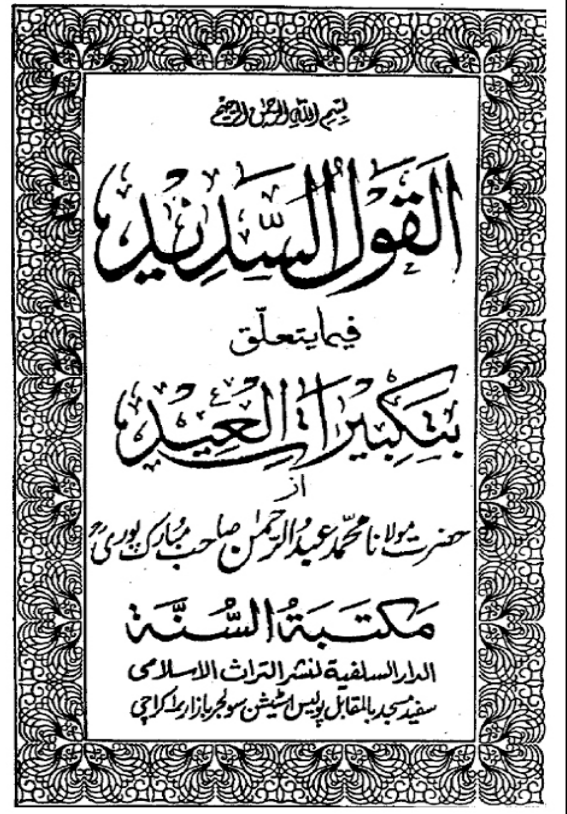 بسم اللہ الرحمٰن الرحیم
اَلقَولُ السَّدِيْد
فیما یتعلّق
بِتَكبِيرَاتِ العِيْد
از
حضرت مولانا محمّد عبدُ الرحمٰن صاحب مُبارک پوریؒ
مَكتَبَةُ السُّنَّة
الدار السلفية لنشر التراث الاسلامی
سفید مسجد بالمقابل پولیس اسٹیشن سولجر بازار ۱ کراچی